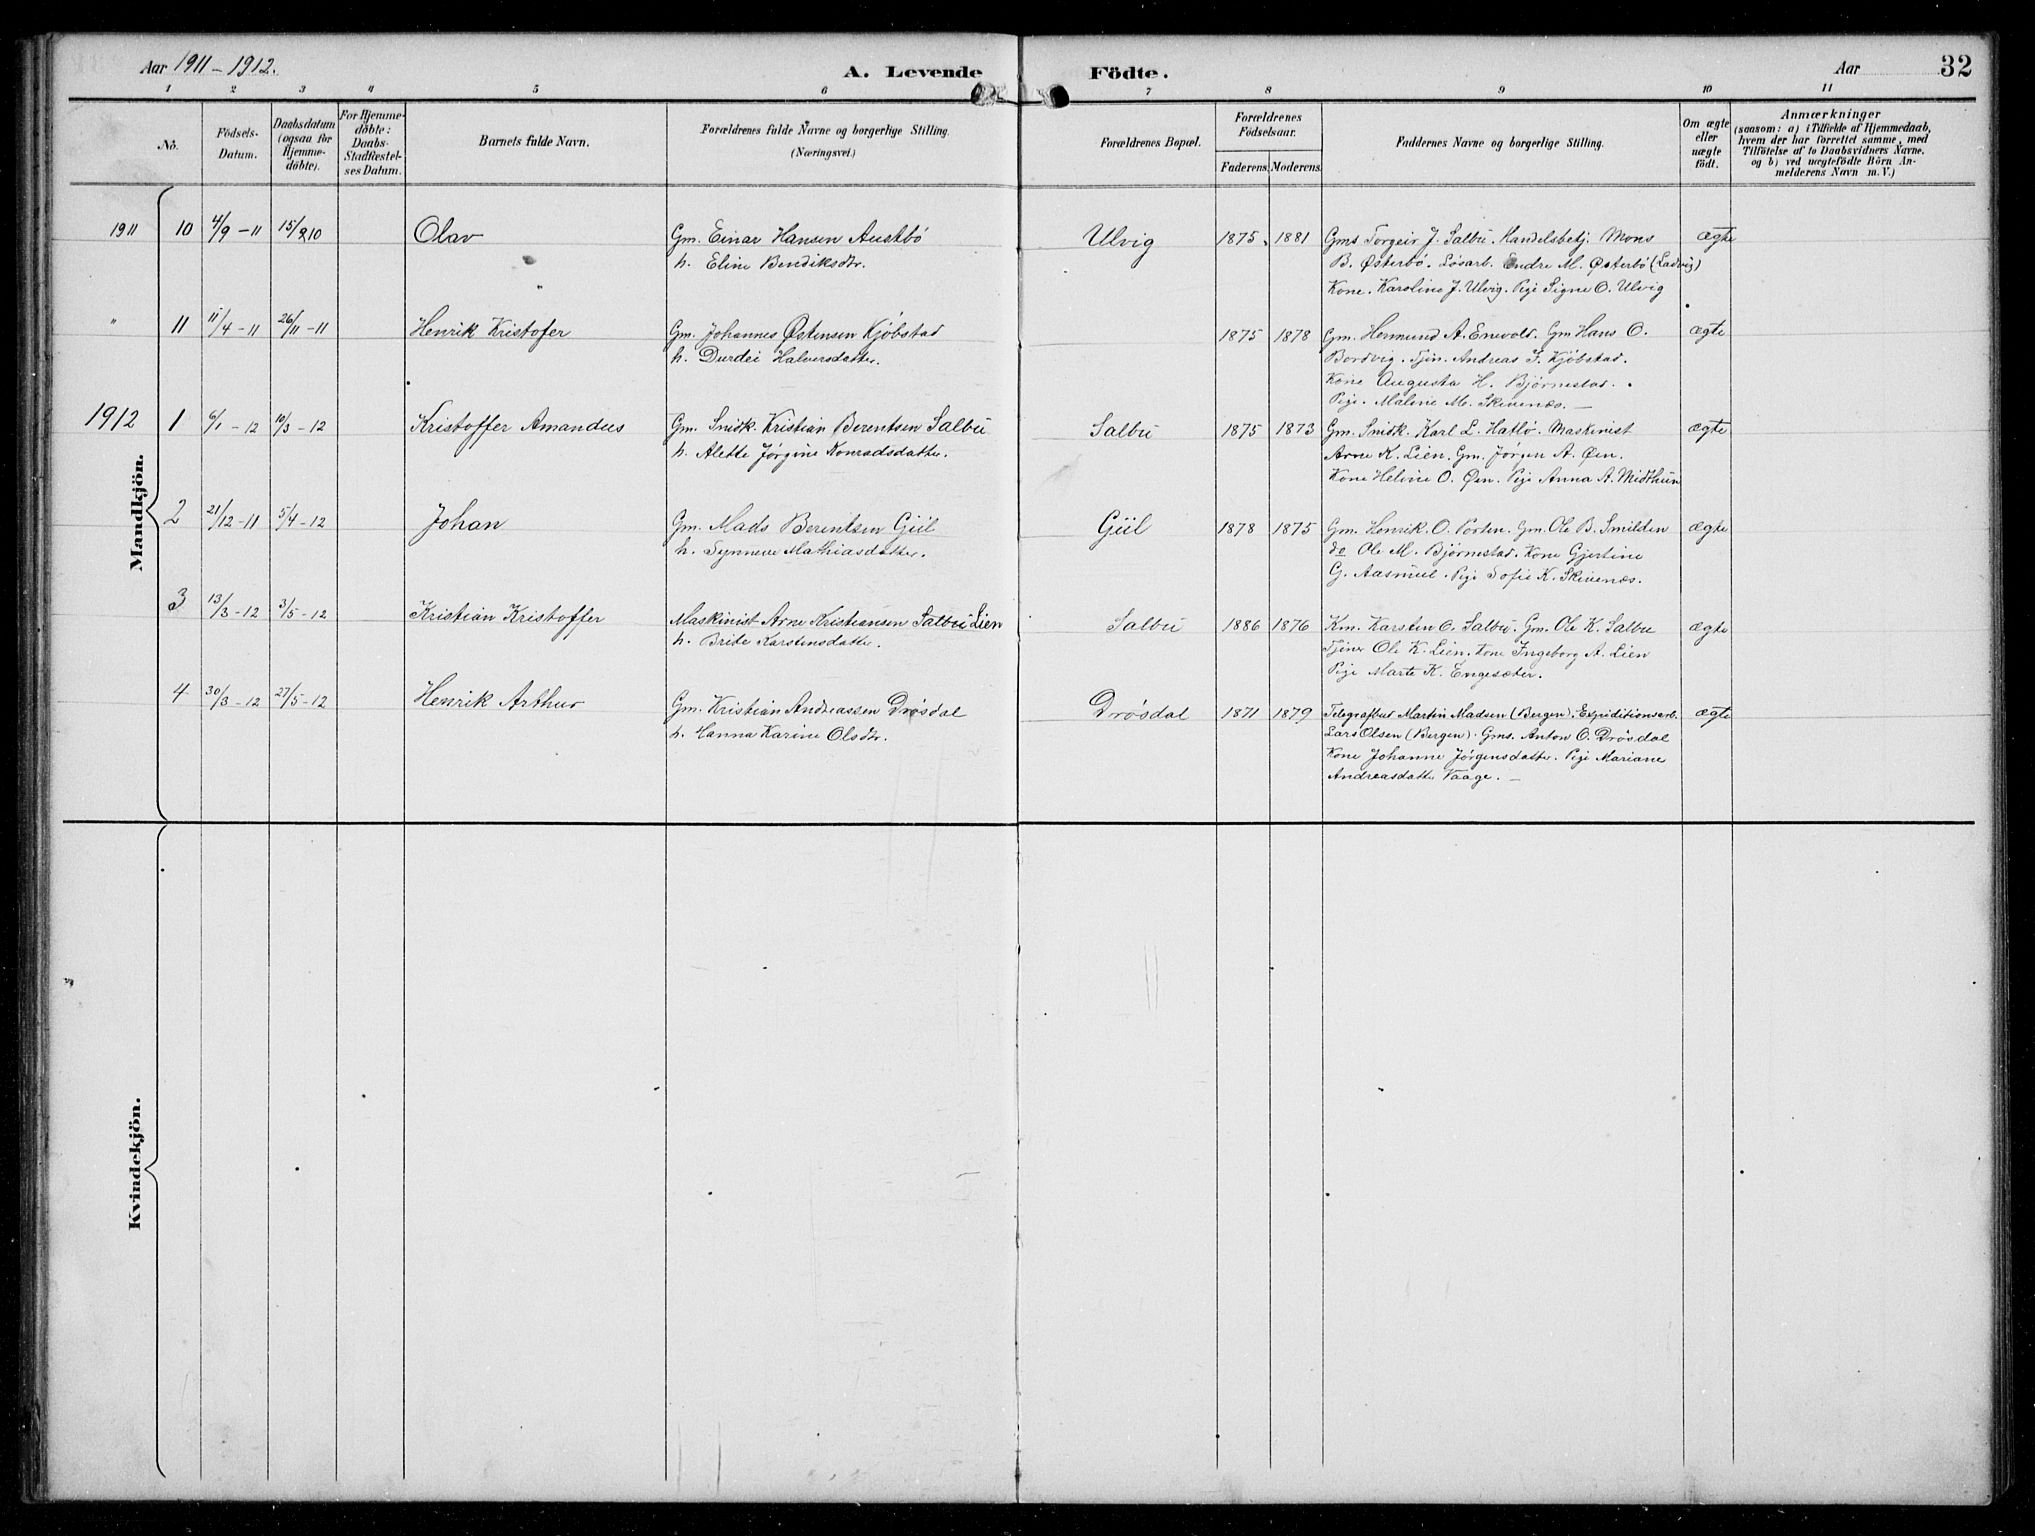 Aar 1911 – 1912.
A. Levende Födte.
Aar
32
1 2 3 4 5 6 7 8 9 10 11
No.
Födsels-
Datum.
Daabsdatum
(ogsaa for
Hjemme-
döbte).
For Hjemme-
döbte:
Daabs-
Stadfæstel-
ses Datum.
Barnets fulde Navn.
Forældrenes fulde Navne og borgerlige Stilling.
(Næringsvei.)
Forældrenes Bopæl.
Forældrenes
Födselsaar.
Faderens. Moderens.
Faddernes Navne og borgerlige Stilling.
Om ægte
eller
uægte
födt.
Anmærkninger
(saasom: a) i Tilfælde af Hjemmedaab,
hvem der har forrettet samme, med
Tilföielse af to Daabsvidners Navne.
og b) ved uægtefödte Börn An-
melderens Navn m. V.)
Mandkjön.
1911 10 4/9 – 11 15/10 Olav Gm. Einar Hansen Austbö Ulvig 1875 1881 Gms. Torgeir J. Salbu. Handelsbetj. Mons ægte
h. Eline Bendiksdtr. B. Østerbö. Løsarb. Endre M. Østerbö (Ladvig)
Kone. Karoline J. Ulvig. Pige Signe O. Ulvig
" 11 11/4 – 11 26/11 – 11 Henrik Kristofer Gm. Johannes Østensen Kjöbstad 1875 1878 Gm. Hermund A. Enevold. Gm Hans O. ægte
h. Durdei Halversdatter. Bordvig. Tjen. Andreas I. Kjöbstad.
Kone Augusta H. Björnestad.
Pige. Maline M. Skivenæs. —
1912 1 6/1 – 12 10/3 – 12 Kristoffer Amandus Gm. Snidk. Kristian Berentsen Salbu Salbu 1875 1873 Gm. Snidk. Karl L. Hatlö. Maskinist ægte
h. Alette Jörgine Konradsdatter. Arne K. Lien. Gm. Jörgen A. Øen.
Kone Heline O. Øen. Pige Anna A. Midthun
2 21/12 – 11 5/4 – 12 Johan Gm. Mads Berentsen Giil Giil 1878 1875 Gm. Henrik O. Porten. Gm. Ole B. Smilden ægte
h. Synneve Mathiasdatter. do Ole M. Björnestad. Kone Gjertine
G. Aasmul. Pige Sofie K. Skivenæs.
3 13/3 – 12 3/5 – 12 Kristian Kristoffer Maskinist Arne Kristiansen Salbu Lien Salbu 1886 1876 Km. Karsten O. Salbu. Gm. Ole K. Salbu ægte
h. Brite Karstensdatter. Tjener Ole K. Lien. Kone Ingeborg A. Lien
Pige Marte K. Engesæter.
4 30/3 – 12 27/5 – 12 Henrik Arthur Gm. Kristian Andreassen Drösdal Drösdal 1871 1879 Telegrafbud Martin Madsen (Bergen). Expeditionsarb. ægte
h. Hanna Karine Olsdtr. Lars Olsen (Bergen). Gms. Anton O. Drösdal
Kone Johanne Jörgensdatter. Pige Mariane
Andreasdatter Vaage. —
Kvindekjön.